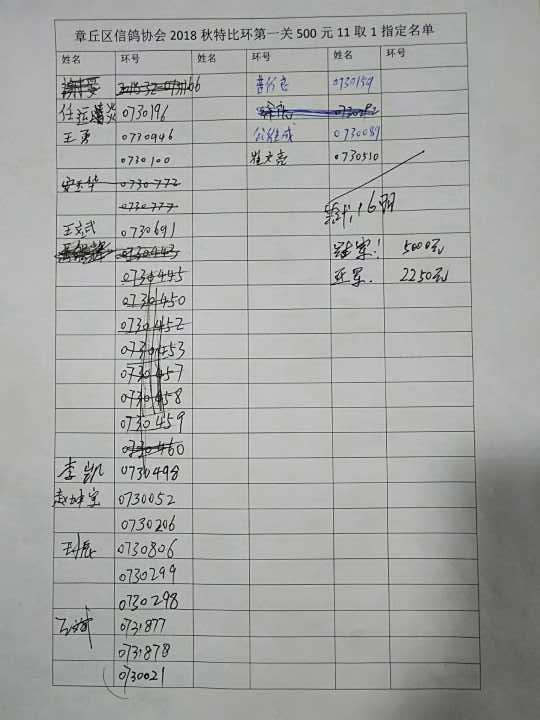 章丘区信鸽协会 2018 秋特比环第一关 500 元 11 取 1 指定名单
姓名 环号 姓名 环号 姓名 环号 姓名 环号
0730159
0730196
王勇 0730946 0730081
0730100 崔文亮 0730510
安玉华 0730772
0730777
王玄武 0730691 16羽
0730443 冠军! 5000元
0730445 亚军. 2250元
0730450
0730452
0730453
0730457
0730458
0730459
0730460
李凯 0730498
赵坤宝 0730052
0730206
0730806
0730299
0730298
0731877
0731878
0730021